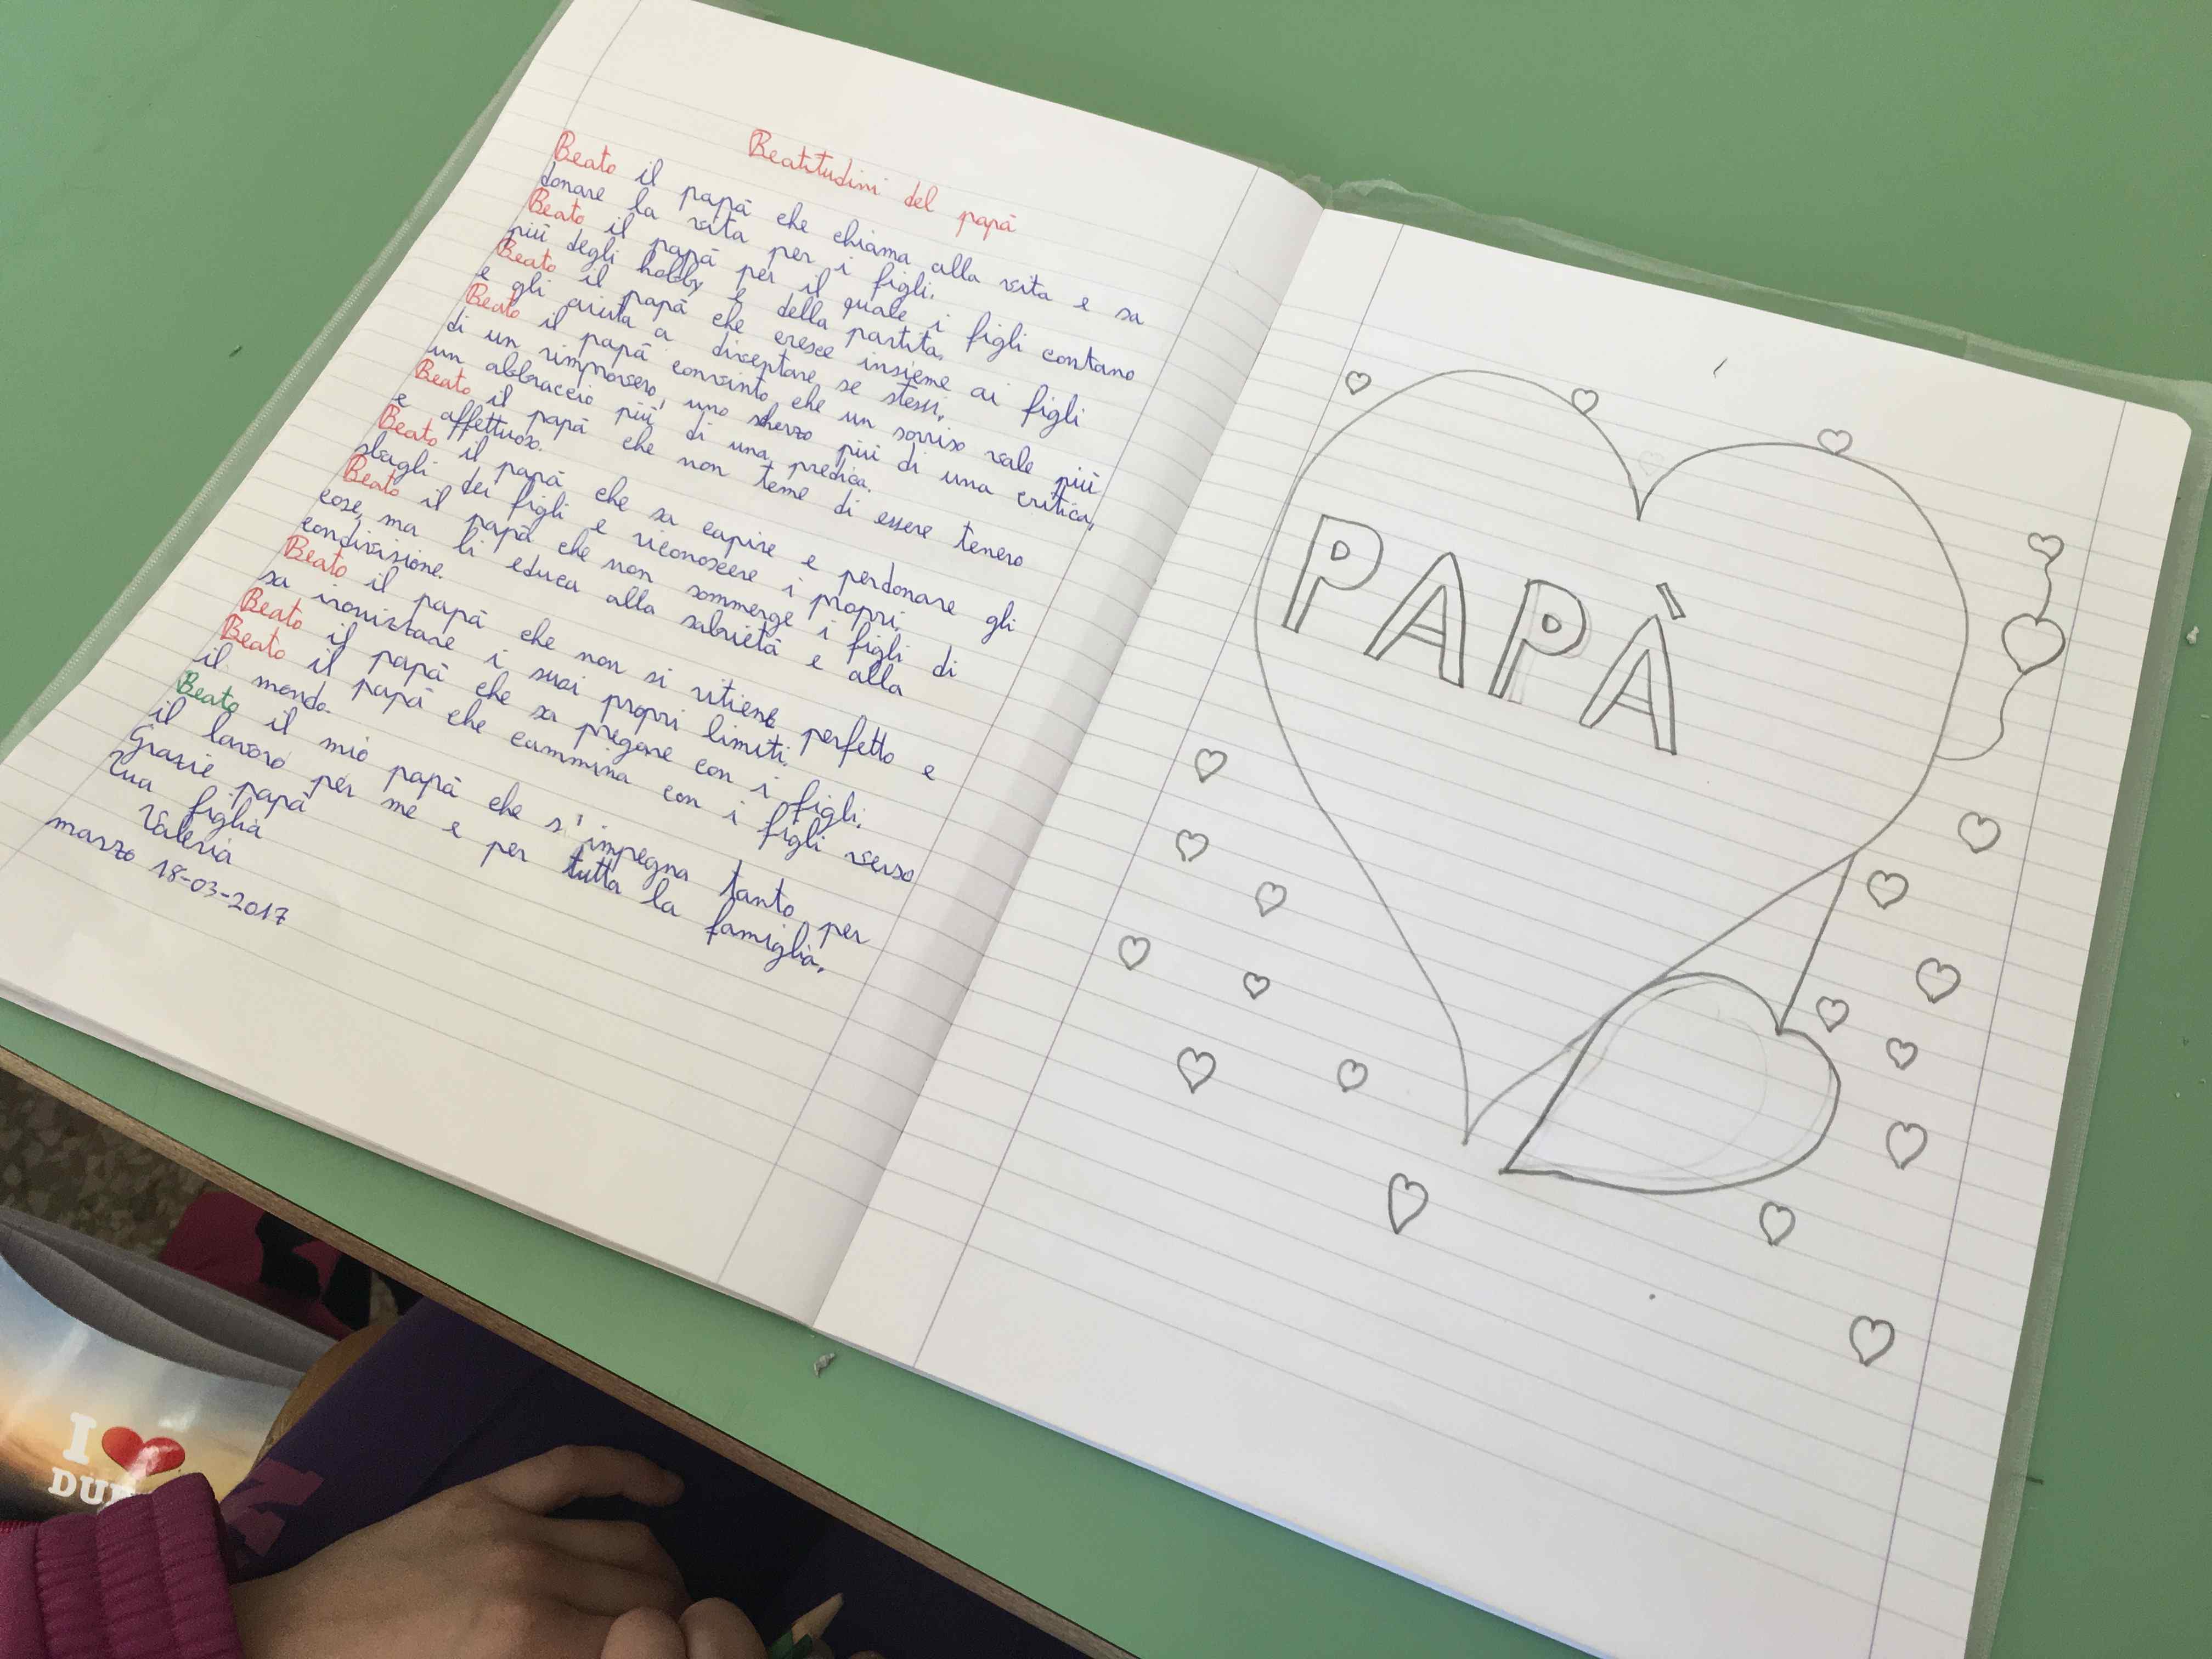 Beatitudini del papà
Beato il papà che chiama alla vita e sa
donare la vita per i figli.
Beato il papà per il quale i figli contano
più degli hobby e della partita.
Beato il papà che cresce insieme ai figli
e gli aiuta a diventare se stessi.
Beato il papà convinto che un sorriso vale più
di un rimprovero, uno scherzo più di una critica,
un abbraccio più di una predica.
Beato il papà che non teme di essere tenero
e affettuoso.
Beato il papà che sa capire e perdonare gli
sbagli dei figli e riconoscere i propri.
Beato il papà che non sommerge i figli di
cose, ma li educa alla sobrietà e alla
condivisione.
Beato il papà che non si ritiene perfetto e
sa ironizzare i suoi propri limiti.
Beato il papà che sa pregare con i figli.
Beato il papà che cammina con i figli verso
il mondo.
Beato il mio papà che s'impegna tanto per
il lavoro per me e per tutta la famiglia.
Grazie papà
tua figlia
Valeria
marzo 18-03-2017
PAPÀ
I